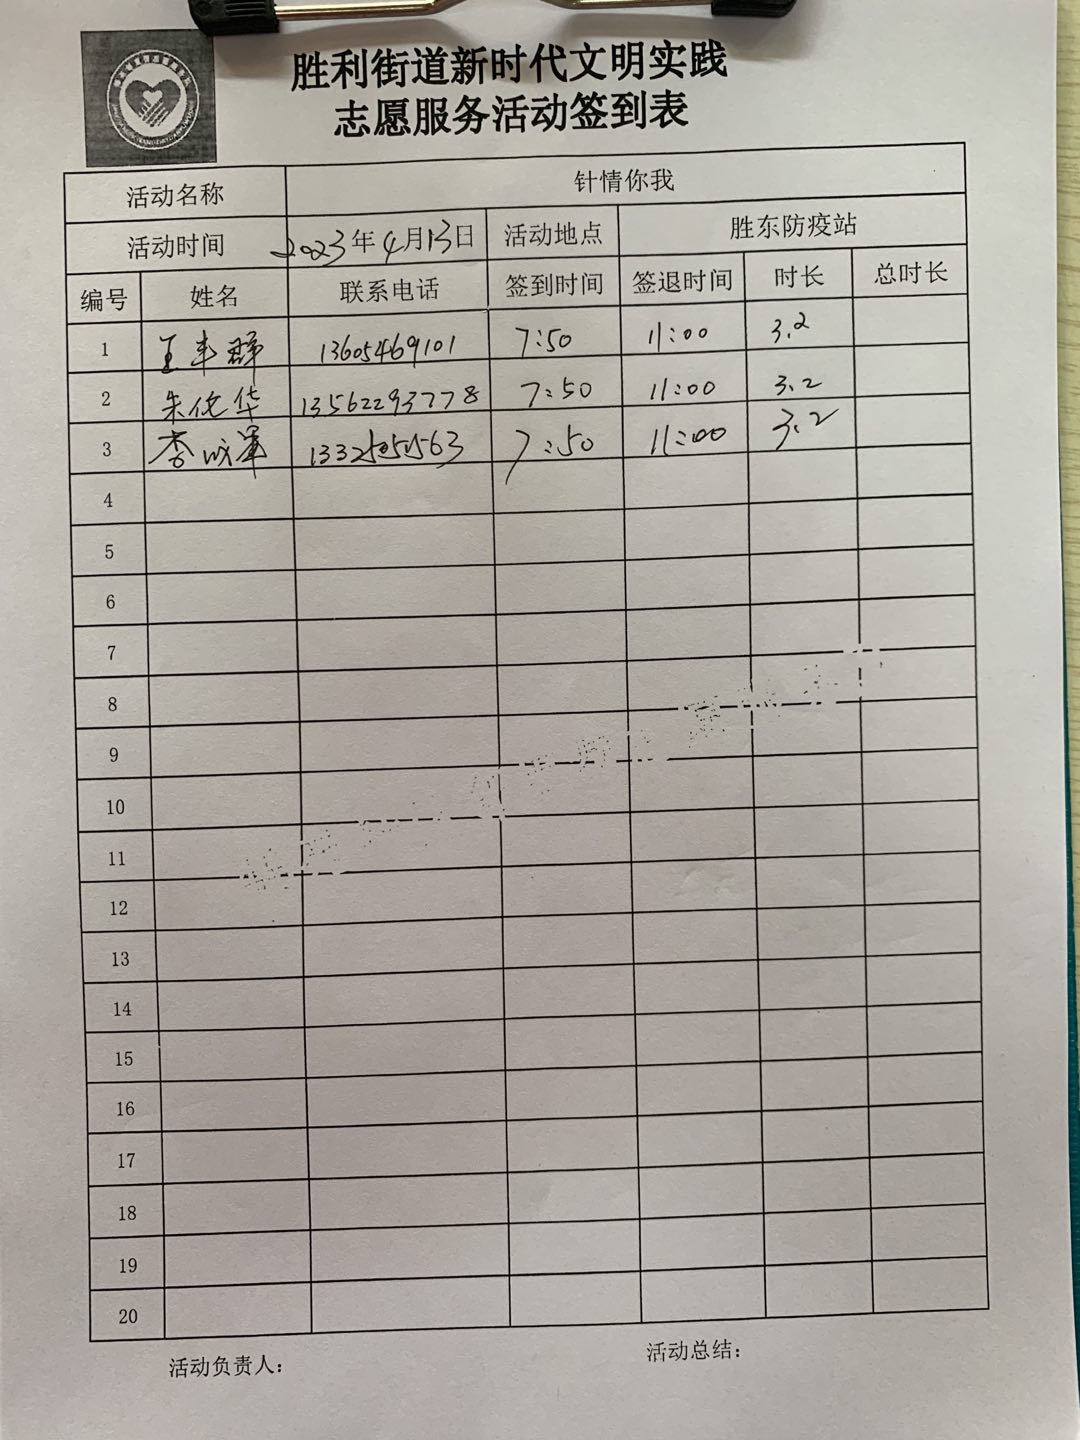 胜利街道新时代文明实践
志愿服务活动签到表
活动名称 针情你我
活动时间 2023年4月13日 活动地点 胜东防疫站
编号 姓名 联系电话 签到时间 签退时间 时长 总时长
1 王丰群 13605469101 7:50 11:00 3.2
2 朱佗华 13562293778 7:50 11:00 3.2
3 李成军 7:50 11:00 3.2
4
5
6
7
8
9
10
11
12
13
14
15
16
17
18
19
20
活动负责人: 活动总结: